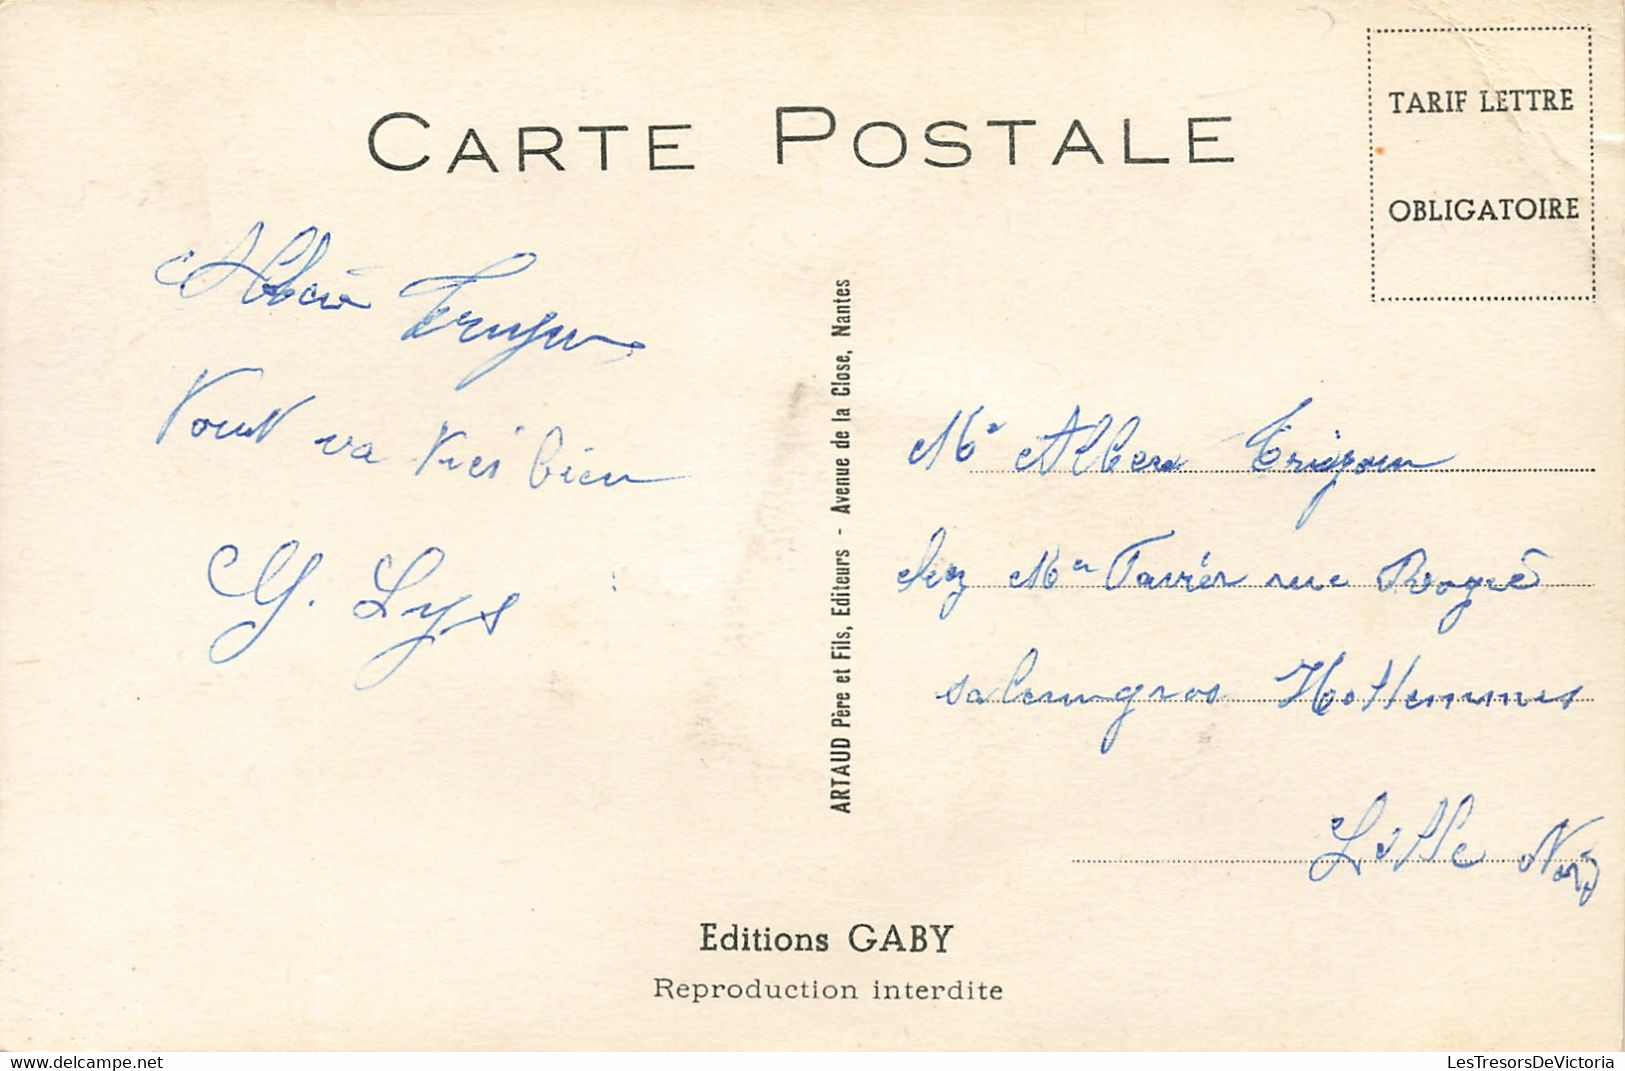 CARTE POSTALE
TARIF LETTRE
OBLIGATOIRE
va très bien
G. Lys
ARTAUD Père et Fils, Editeurs - Avenue de la Close, Nantes
Mr Albere Trigoun
chez Mer rue Rogé
salemgros Hellemmes
Lille Nord
Editions GABY
Reproduction interdite
LesTresorsDeVictoria